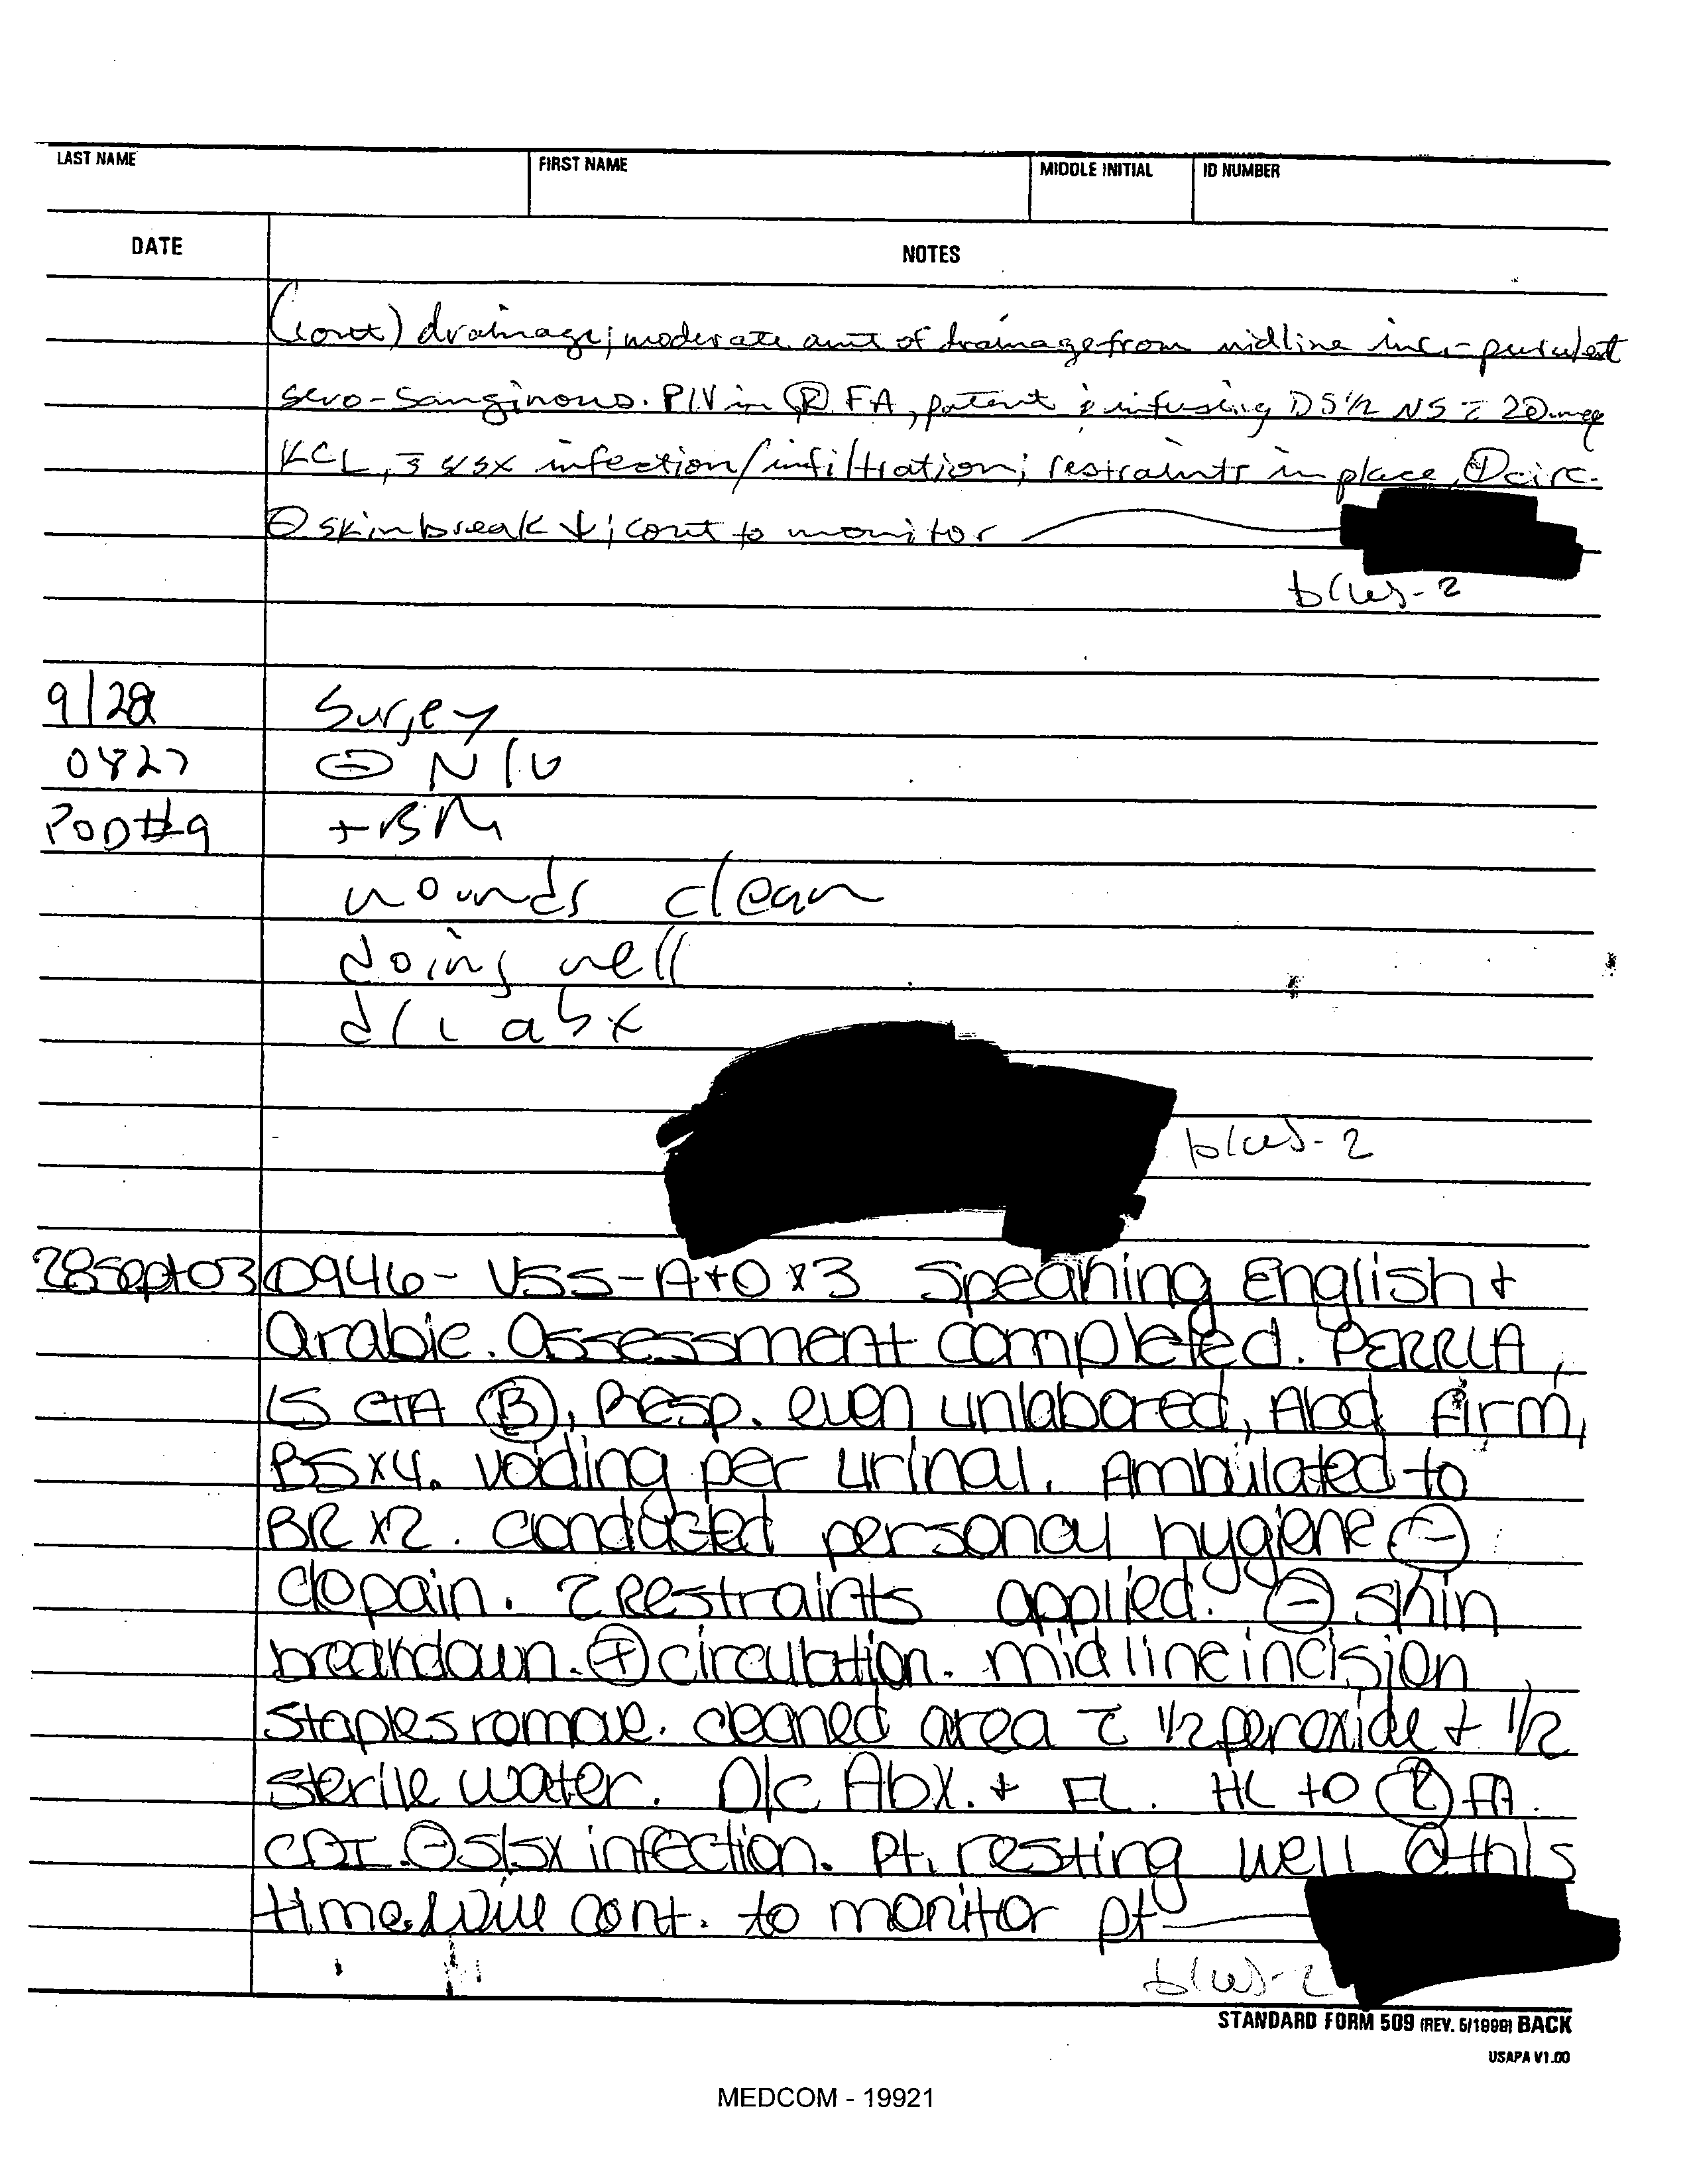 LAST NAME
FIRST NAME
MIDDLE INITIAL
ID NUMBER
DATE
NOTES
(cont) drainage; moderate amt of drainage from midline inc. - purulent
sero-sanginous. PIV in Ⓡ FA, patent & infusing D5 1/2 NS c̄ 20 meq
KCL, s̄ s/sx infection/infiltration; restraints in place, ⊕ circ.
⊖ skin break ↓; cont to monitor
b(6)-2
9/28
Surgey
0827
⊖ N/V
POD#9
+BM
wounds clean
doing well
d/c abx
b(6)-2
28Sept03 0946- VSS-A+O x3 Speaking English +
Arabic. Assessment completed. PERRLA,
LS CTA Ⓑ, Resp. even unlabored, Abd firm,
BSx4. Voiding per urinal. Ambulated to
BR x2. conducted personal hygiene ⊖
c/o pain. 2 Restraints applied. ⊖ skin
breakdown. ⊕ circulation. midline incision
staples romove. cleaned area c̄ 1/2 peroxide + 1/2
sterile water. D/c Abx. + FL. HL to Ⓡ FA.
CDI. ⊖ s/sx infection. Pt. resting well @ this
time. Will cont. to monitor pt
b(6)-2
STANDARD FORM 509 (REV. 5/1999) BACK
USAPA V1.00
MEDCOM - 19921